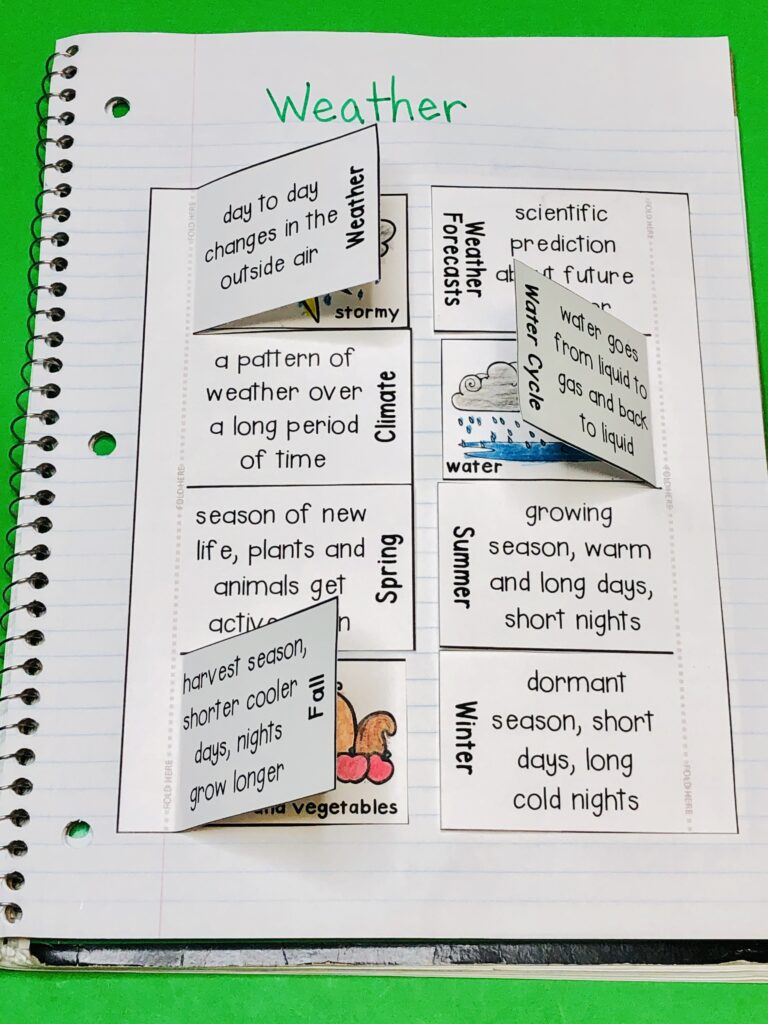 Weather
day to day
changes in the
outside air
Weather
stormy
FOLD HERE
a pattern of
weather over
a long period
of time
Climate
FOLD HERE
season of new
life, plants and
animals get
Spring
harvest season,
shorter cooler
days, nights
grow longer
Fall
vegetables
FOLD HERE
Weather
Forecasts
scientific
prediction
future
FOLD HERE
Water Cycle
water goes
from liquid to
gas and back
to liquid
water
Summer
growing
season, warm
and long days,
short nights
FOLD HERE
Winter
dormant
season, short
days, long
cold nights
FOLD HERE